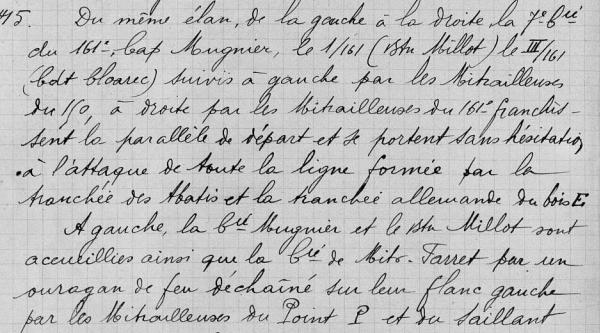 415. Du même élan, de la gauche à la droite, la 7e Cie
du 161e, Cap Mugnier, le 1/161 (Btn Millot) le III/161
(Cdt Cloarec) suivis à gauche par les Mitrailleuses
du 150, à droite par les Mitrailleuses du 161e franchis-
sent la parallèle de départ et se portent sans hésitation,
à l'attaque de toute la ligne formée par la
tranchée des Abatis et la tranchée allemande du bois E
A gauche, la Cie Mugnier et le Btn Millot sont
acceuillies ainsi que la Cie de Mitr. Farret par un
ouragan de feu déchaîné sur leur flanc gauche
par les Mitrailleuses du Point P et du Saillant